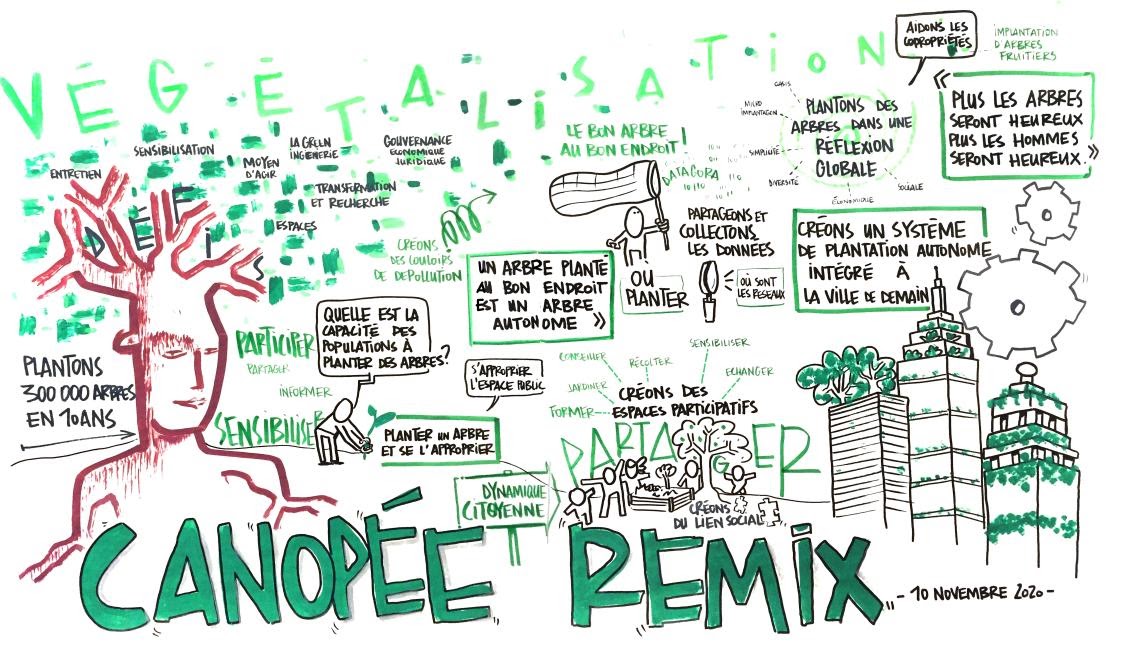 VÉGÉTALISATION
AIDONS LES
COPROPRIÉTÉS
IMPLANTATION
D'ARBRES
FRUITIERS
« PLUS LES ARBRES
SERONT HEUREUX
PLUS LES HOMMES
SERONT HEUREUX. »
OASIS
MICRO
IMPLANTATION
SIMPLICITÉ
DIVERSITÉ
ÉCONOMIQUE
SOCIALE
PLANTONS DES
ARBRES DANS UNE
RÉFLEXION
GLOBALE
SENSIBILISATION
ENTRETIEN
MOYEN
D'AGIR
LA GREEN
INGÉNIERIE
GOUVERNANCE
ÉCONOMIQUE
JURIDIQUE
TRANSFORMATION
ET RECHERCHE
ESPACES
DÉFIS
LE BON ARBRE
AU BON ENDROIT!
DATAGORA
PARTAGEONS ET
COLLECTONS
LES DONNÉES
OÙ
PLANTER
OÙ SONT
LES RESEAUX
CRÉONS
DES COULOIRS
DE DÉPOLLUTION
UN ARBRE PLANTÉ
AU BON ENDROIT
EST UN ARBRE
AUTONOME »
CRÉONS UN SYSTÈME
DE PLANTATION AUTONOME
INTÉGRÉ À
LA VILLE DE DEMAIN
PLANTONS
300 000 ARBRES
EN 10 ANS
PARTICIPER
PARTAGER
INFORMER
SENSIBILISER
QUELLE EST LA
CAPACITÉ DES
POPULATIONS À
PLANTER DES ARBRES?
S'APPROPRIER
L'ESPACE PUBLIC
PLANTER UN ARBRE
ET SE L'APPROPRIER
CONSEILLER
RÉCOLTER
SENSIBILISER
JARDINER
ECHANGER
FORMER
CRÉONS DES
ESPACES PARTICIPATIFS
PARTAGER
DYNAMIQUE
CITOYENNE
CRÉONS
DU LIEN SOCIAL
CANOPÉE REMIX
- 10 NOVEMBRE 2020 -